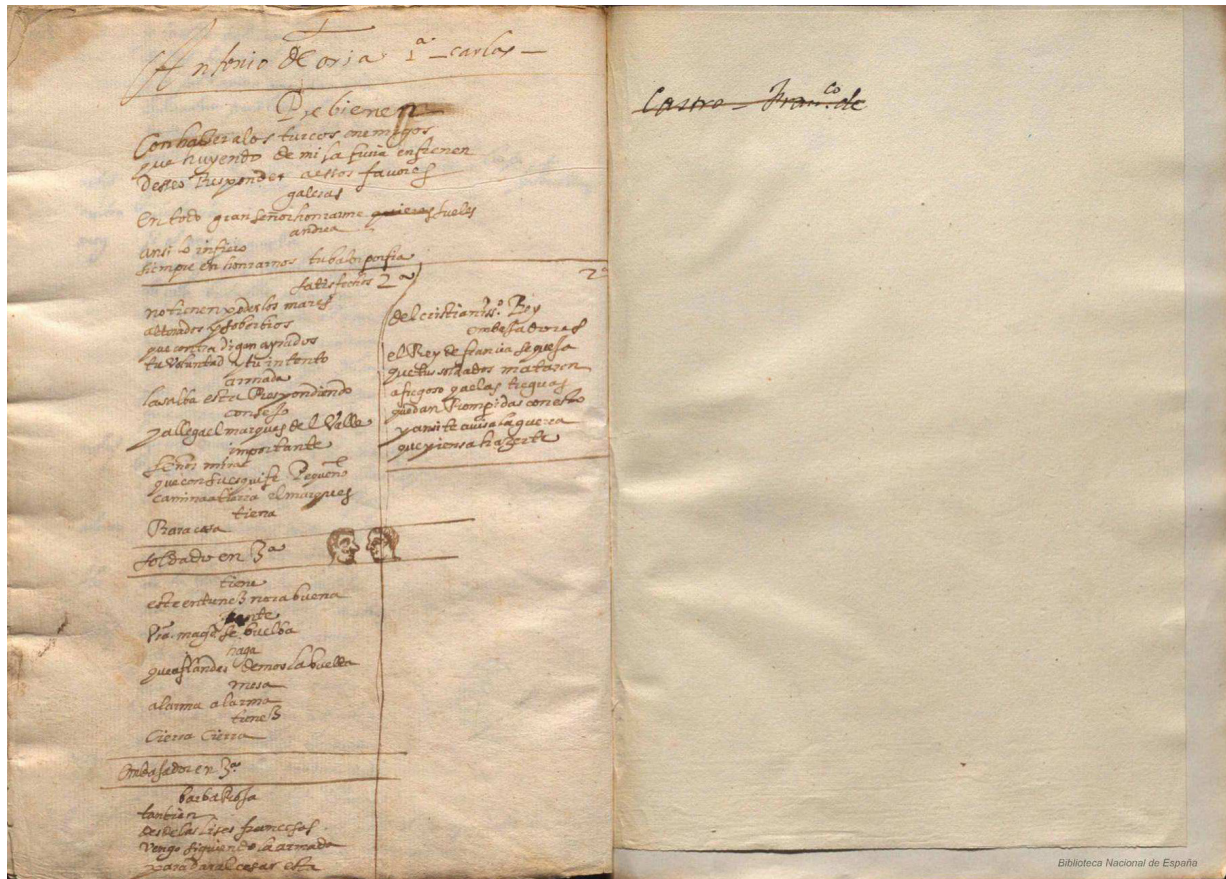 Antonio de oria 1ª carlos
Prebienen
Con haber a los turcos enemigos
que huyendo de mi la furia enfrenen
deseo Responder a estos favores
galeras
En todo gran señor honrarme quieres sueles
andrea
ansi lo infiero
siempre en honrarnos tu balor porfia
satisfechos 2ª
no tienen poder los mares
alterados y soberbios
que contra digan ayrados
tu voluntad y tu intento
armada
la salba esta Respondiendo
consejo
y a llega el marques del Valle
importante
señor mirad
que con su esquife Pequeño
camina a tierra el marques
tierra
Rara cosa
soldado en 3ª
tiene
este entunez norabuena
gente
Vra. magd. se buelba
haga
que a flandes demos la buelta
mesa
al arma al arma
tunez
Cierra Cierra
Embasador en 3ª
barbaRoja
tanbien
desde las lises francesas
vengo siguiendo la armada
para dar al cesar esta
2ª
del cristianiss.º Rey
embassadores
el Rey de francia se quexa
que tus soldados mataron
a fregoso y a las treguas
quedan Rompidas con esto
y ansi te avisa la guerra
que piensa hazerte
Castro Fran.co de
Biblioteca Nacional de España